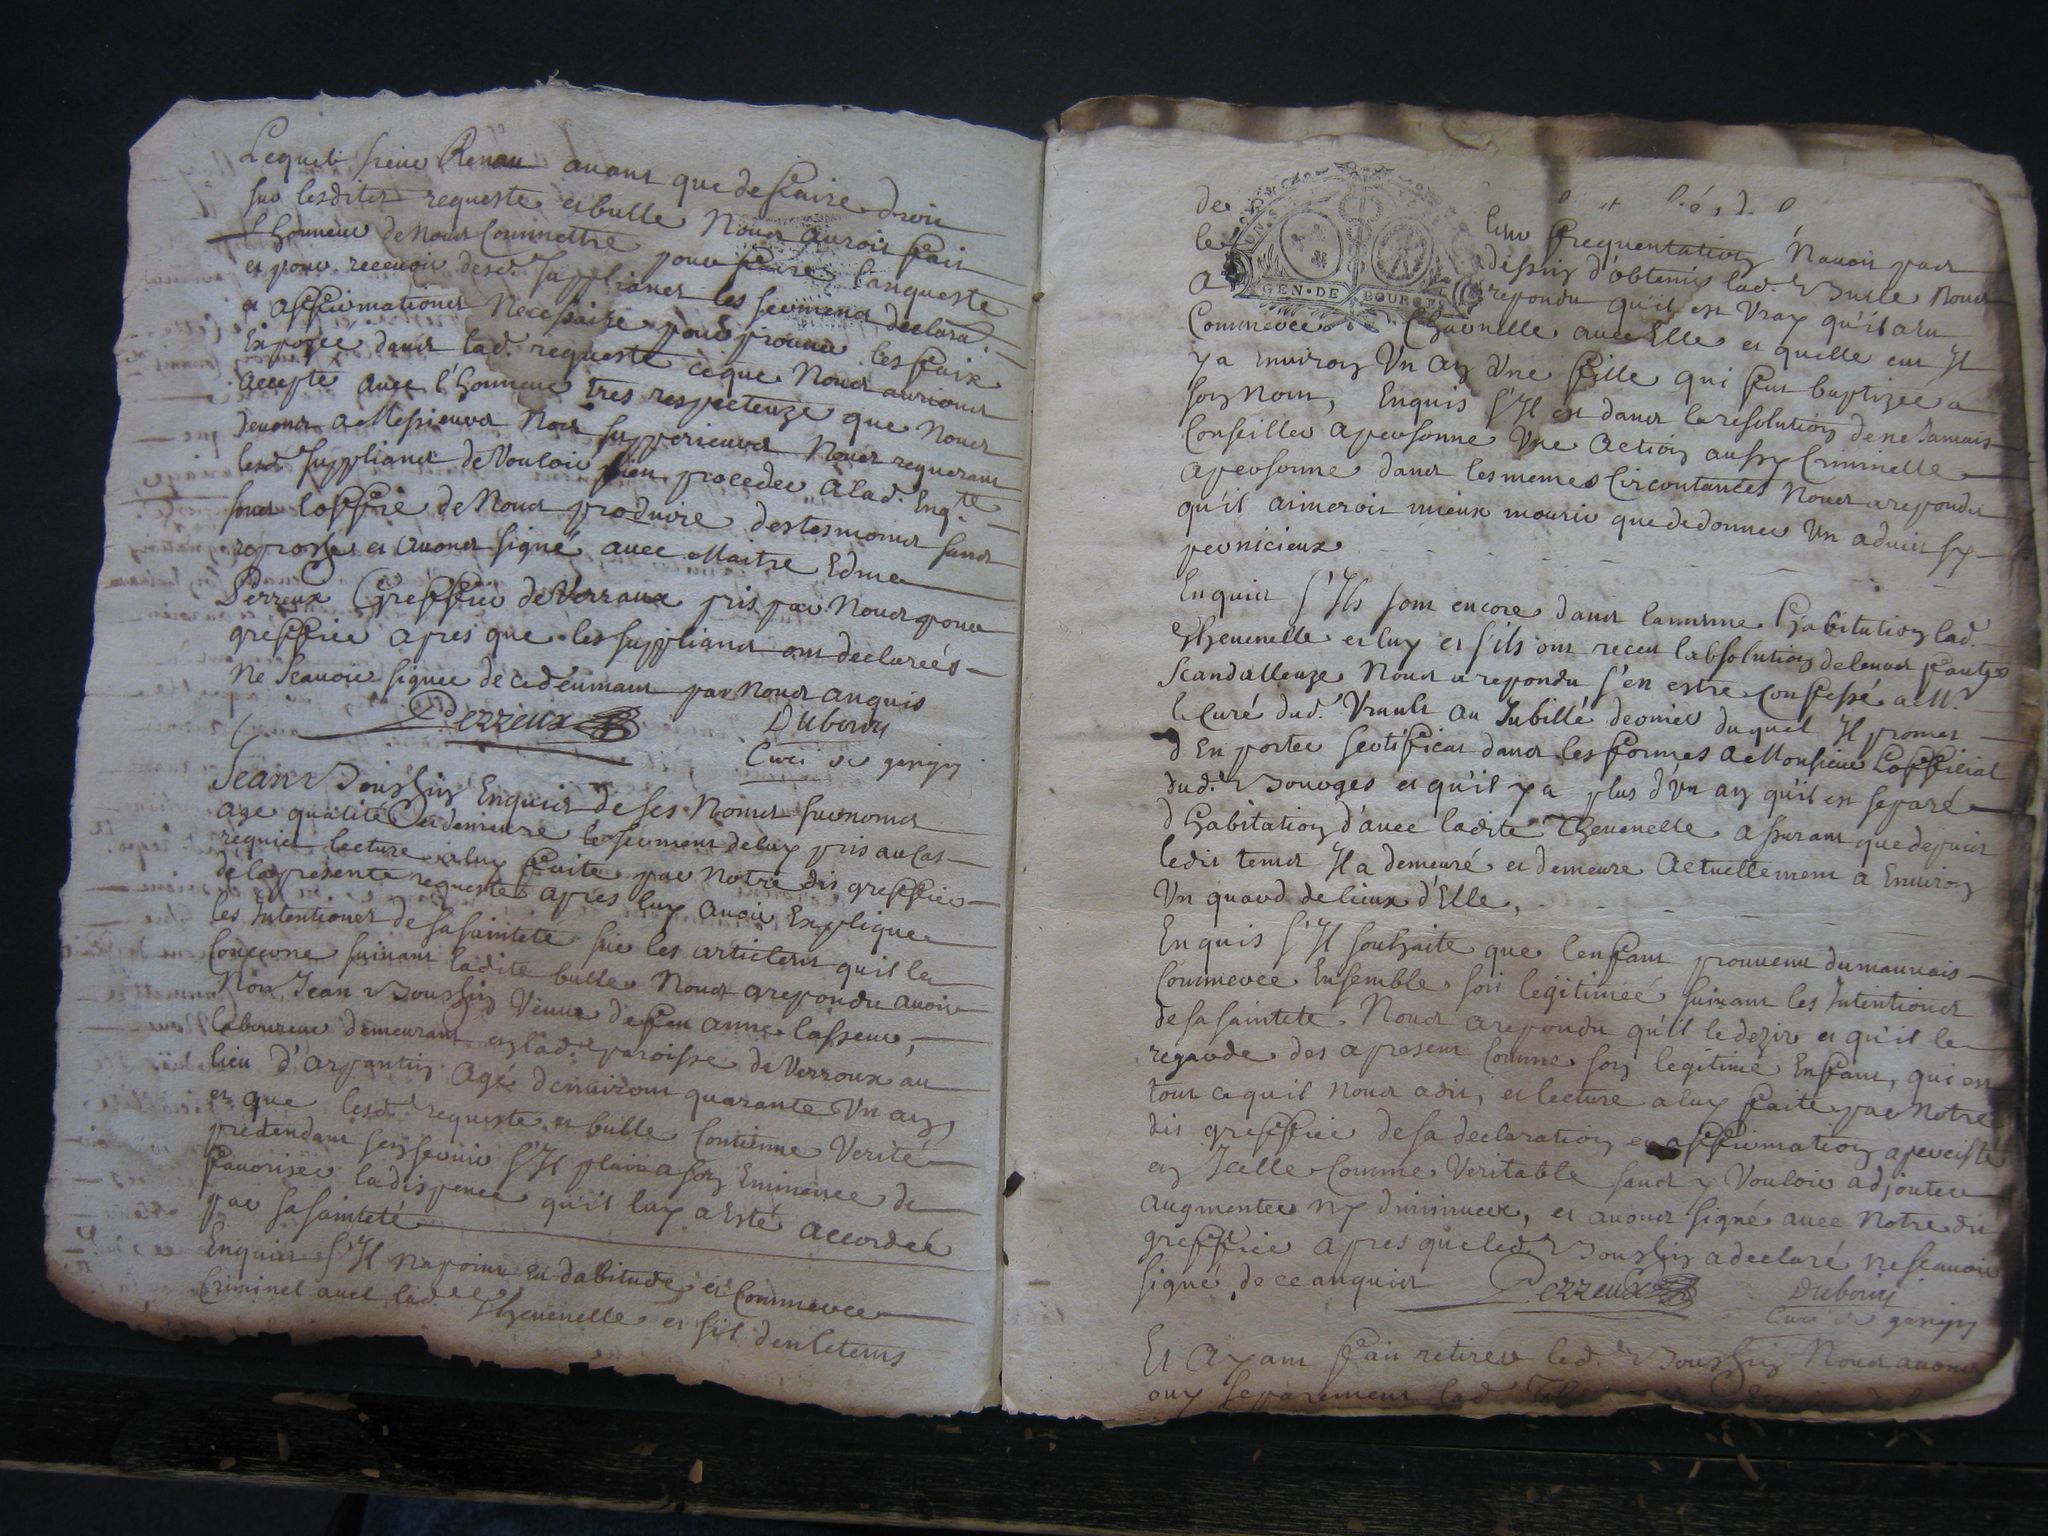 Lequel sieur Renau avant que de faire droit
sur lesdites requeste et bulle Nous auroit fait
l'honneur de Nous Commettre pour faire l'anqueste
et pour recevoir desd. Supplians les sermens declara.
et affirmations Necessaire pour prouver les faix
Exposee dans lad. requeste ce que Nous aurions
accepté avec l'honneur tres respecteuze que Nous
devons a Messieurs Nos supperieurs Nous requerant
lesd. Supplians de Vouloir bien proceder a lad. Enq.te
sous l'offre de Nous produire des tesmoins sans
reproche et avons signé avec Maitre Edme
Perreux Greffier de Verraux pris par Nous pour
greffier apres que les supplians ont declareés
Ne Scavoir signer de ce deumant par nous anquis
Perreux Dubouis
Curé de
Jean Bouffin Enquis de ses Noms surnoms
age qualité et demeure le serment de luy pris au cas
requis lecture a luy faite par Notre dit greffier
de la presente requeste apres luy avoir Explique
les Intentions de sa sainteté sur les articles qu'il le
Concerne suivant ladite bulle Nous a repondu avoir
Nom Jean Bouffin Veuve de feu anne lasseur,
laboureur demeurant en lad. paroisse de Verroux au
lieu d'arpantin agé d'environt quarante Un an,
et que lesd. requeste et bulle Contienne Verité
pretendant sen servir s'Il plait a son Eminence de
favorizer la dispence qu'il luy a esté accordée
par sa sainteté
Enquis s'Il na point eu d'abitude et Commerce
Criminel avec lad. Thevenelle et sil den letems
de leur frequentation N'avoit pas
le dessein d'obtenir lad. Bulle Nous
a repondu qu'il est Vray qu'il a eu
GEN · DE BOURGES
Commerce Charnelle avec Elle et quelle eut Il
y a environ Un an d'Une fille qui fut baptizée a
son Nom, Enquis s'Il est dans la resolution de ne Jamais
Conseiller a personne Une action aussy Criminelle
a personne dans les memes Circontances Nous a repondu
qu'il aimeroit mieux mourir que de donner Un advis sy
pernicieux
Enquis s'Ils sont encore dans la mesme habitation lad.
Thevenelle et luy et s'ils ont receu l'absolution de leurs faute
Scandalleuze Nous a repondu s'en estre Confessé a M.r
le Curé dud. Vrault au Jubillé dernier duquel Il promet
d'En porter sertificat dans les formes a Monsieur L'official
dud. Bourges et qu'il y a plus d'Un an qu'il est separé
d'habitation d'avec ladite Thevenelle assurant que depuis
ledit tems Il a demeuré et demeure actuellement a Environ
Un quard de lieux d'Elle,
Enquis s'Il souhaite que lenfant prouvenu du mauvais
Commerce Ensemble soit legitimeé suivant les Intentions
de sa sainteté. Nous a repondu qu'il le dezir et qu'il le
regarde des a present Comme son legitime Enfant, qui est
tout ce qu'il Nous a dit, et lecture a luy faite par Notre
dit greffier de sa declaration et affirmation a perciste
en Icelle Comme Veritable sans y Vouloir adjouter
augmenter ny diminueer, et avons signé avec Notre dit
greffier apres que led. Bouffin a declaré ne scavoir
signé de ce anquis Perreux Dubouis
Curé de
Et ayant fait retirer led. Bouffin Nous avons
ouy separement lad.